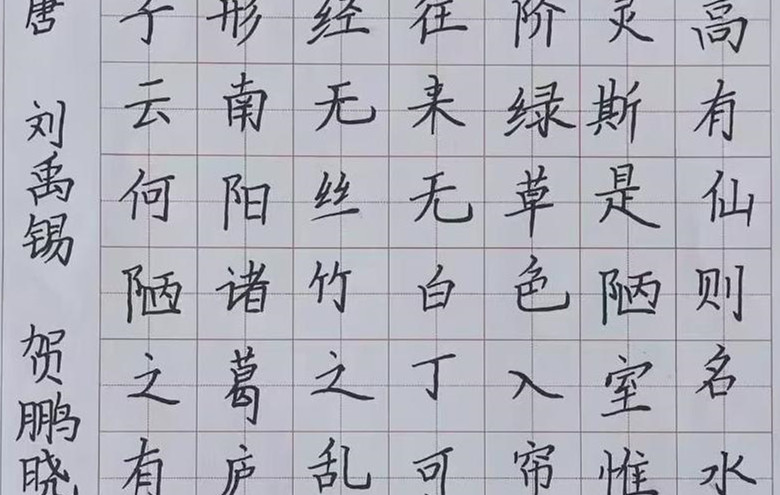 高有仙则名水
灵斯是陋室惟
阶绿草色入帘
往来无白丁可
经无丝竹之乱
形南阳诸葛庐
子云何陋之有
唐 刘禹锡 贺鹏晓